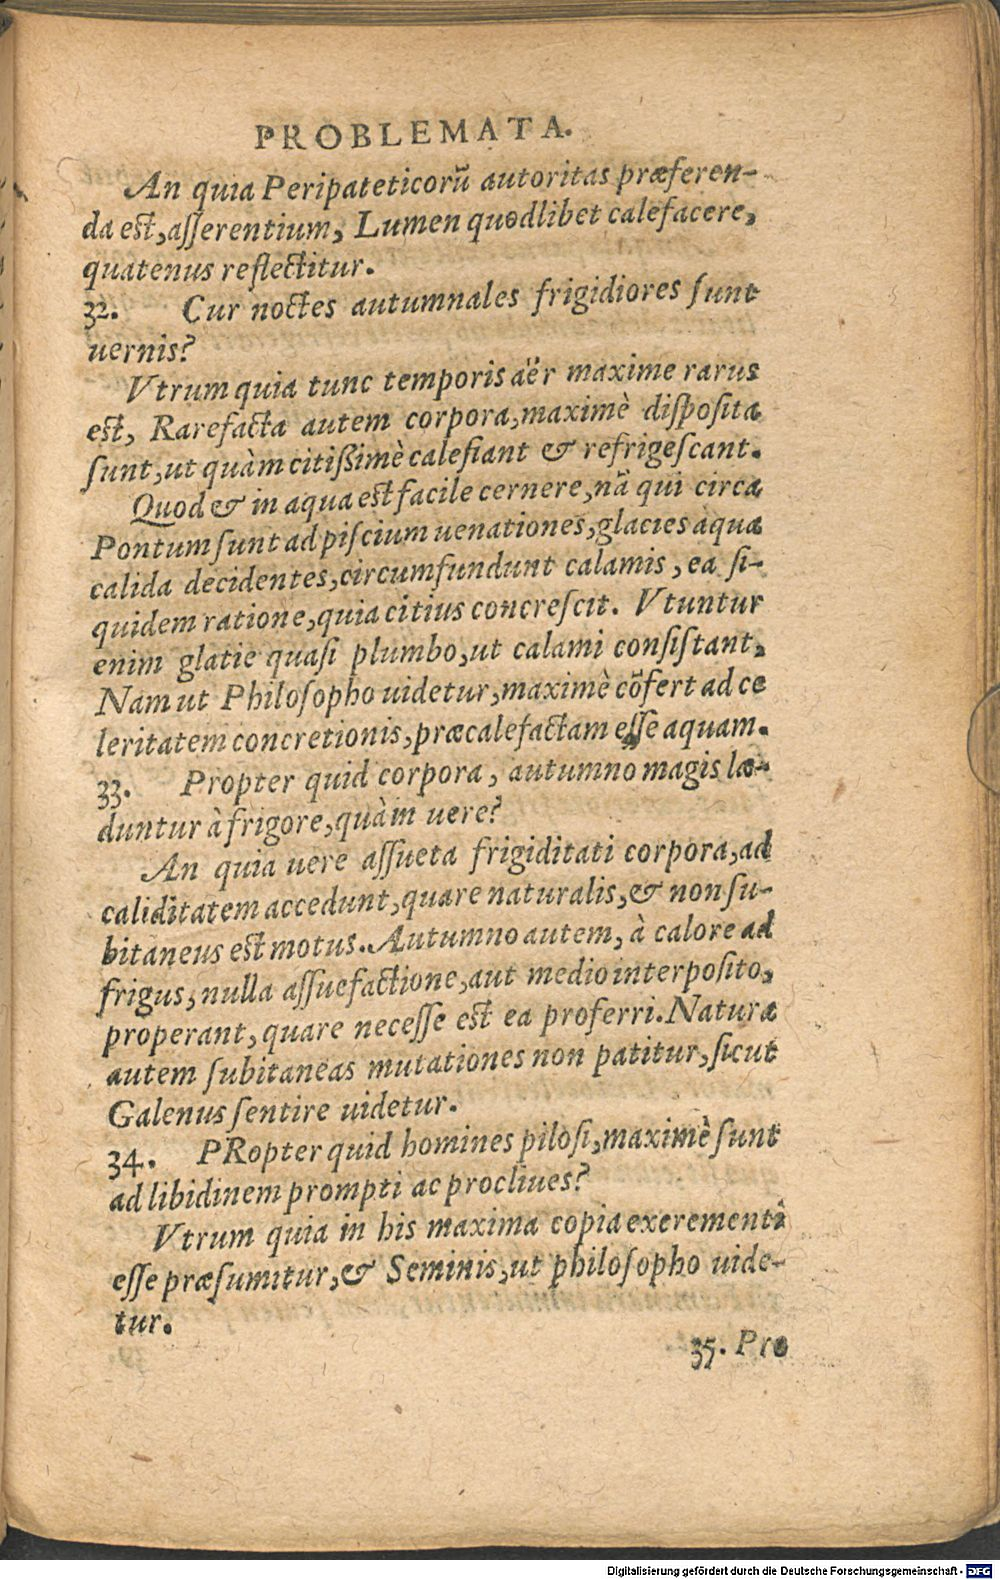 PROBLEMATA.
An quia Peripateticorũ autoritas præferen-
da est, asserentium, Lumen quodlibet calefacere,
quatenus reflectitur.
32. Cur noctes autumnales frigidiores sunt
uernis?
Vtrum quia tunc temporis aër maxime rarus
est, Rarefacta autem corpora, maximè disposita
sunt, ut quàm citißimè calefiant & refrigescant.
Quod & in aqua est facile cernere, nã qui circa
Pontum sunt ad piscium uenationes, glacies aqua
calida decidentes, circumfundunt calamis, ea si-
quidem ratione, quia citius concrescit. Vtuntur
enim glatie quasi plumbo, ut calami consistant,
Nam ut Philosopho uidetur, maximè cõfert ad ce
leritatem concretionis, præcalefactam esse aquam.
33. Propter quid corpora, autumno magis læ-
duntur à frigore, quàm uere?
An quia uere assueta frigiditati corpora, ad
caliditatem accedunt, quare naturalis, & non su-
bitaneus est motus. Autumno autem, à calore ad
frigus, nulla assuefactione, aut medio interposito,
properant, quare necesse est ea proferri. Natura
autem subitaneas mutationes non patitur, sicut
Galenus sentire uidetur.
34. PRopter quid homines pilosi, maximè sunt
ad libidinem prompti ac procliues?
Vtrum quia in his maxima copia exerementi
esse præsumitur, & Seminis, ut philosopho uide-
tur.
35. Pro
Digitalisierung gefördert durch die Deutsche Forschungsgemeinschaft - DFG